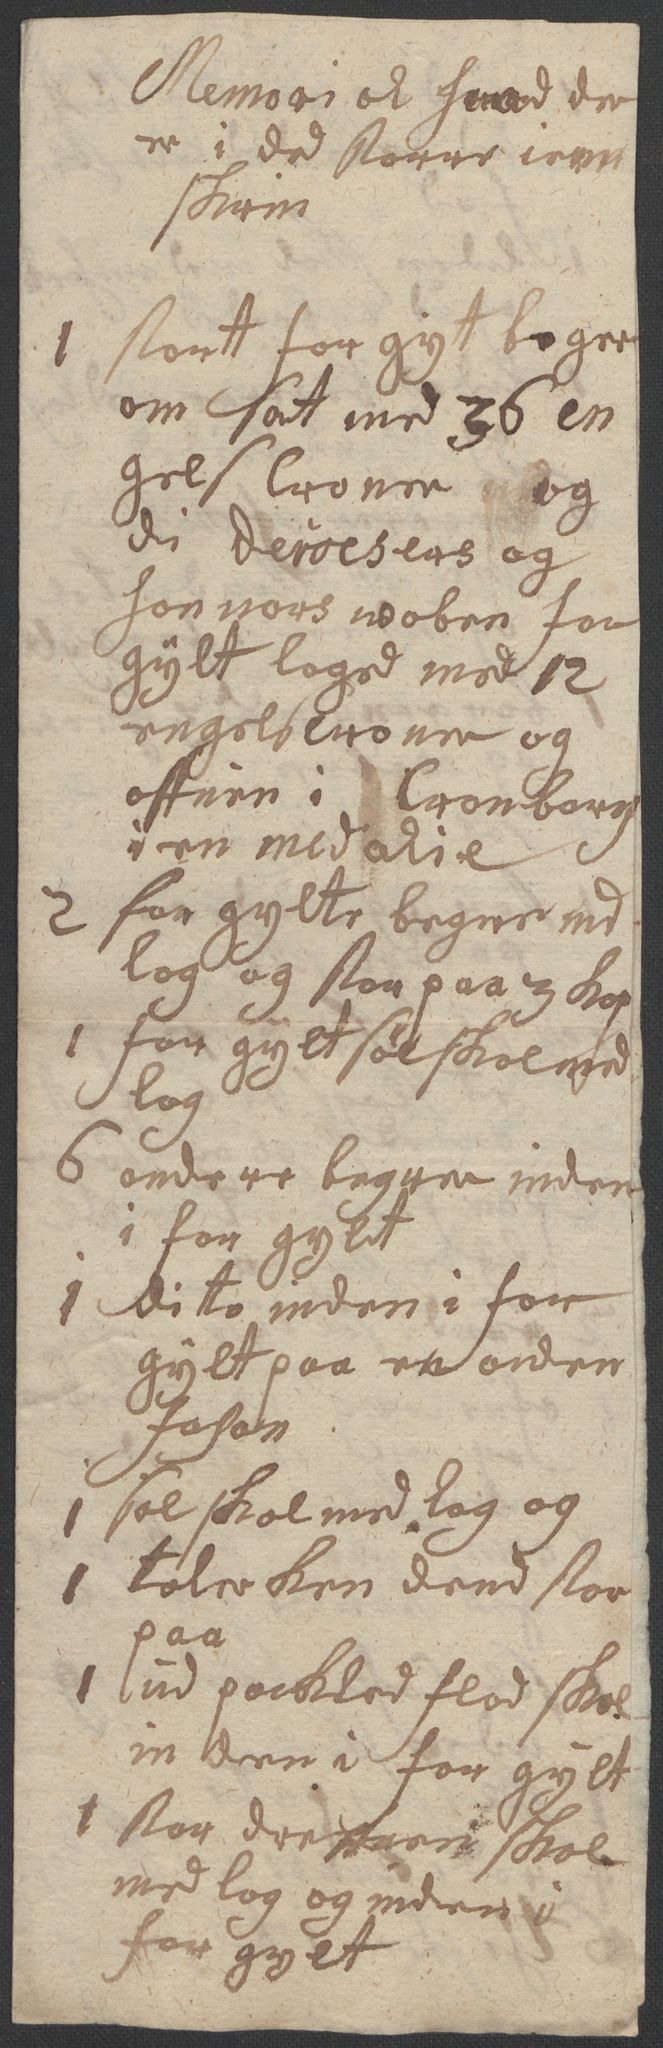 Memorial huad der
er i ded storre iern
skrin
1 stort for gyt beger
om sat med 36 en
gels croner og
di Deroesers og
honnors woben for
gylt loged med 12
engelscroner og
offuen i Cronborg
i en medalie
2 for gylte begere med
log og stor paa 3 kop
1 for gylt søl skol med
log
6 andere begrer inden
i for gylt
1 dito inden i for
gylt paa en anden
fason
1 søl skol med log og
1 tolerken dend stor
paa
1 ud pockled flad skol
in den i for gylt
1 stor dreffuen skol
med log og inden i
for gylt